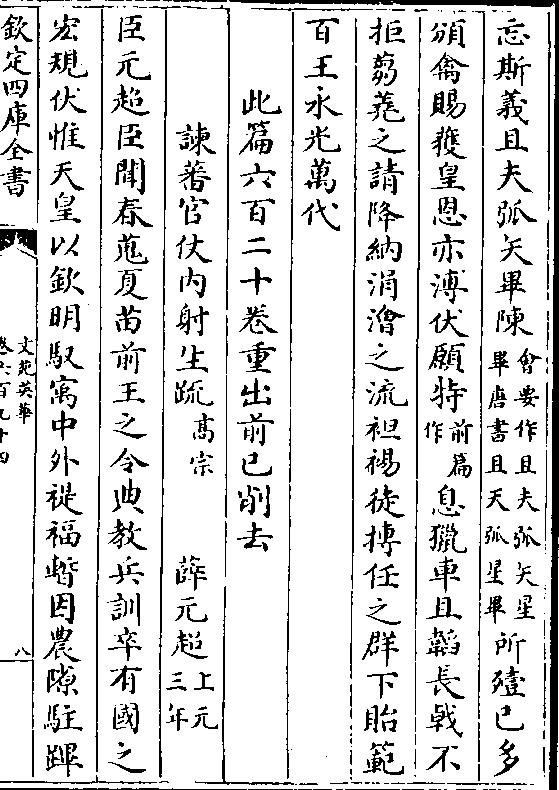 忘斯義且夫弧矢畢陳會要作且夫弧矢星畢唐書且天弧星畢所殪已多
頒禽賜獲皇恩亦溥伏願特前篇作息獵車且韜長戟不
拒蒭蕘之請降納涓澮之流袒裼徒搏任之群下貽範
百王永光萬代
此篇六百二十卷重出前已削去
諫蕃官仗内射生疏高宗 薛元超上元三年
臣元超臣聞春蒐夏苗前王之令典教兵訓卒有國之
宏規伏惟天皇以欽明馭寓中外禔福暫因農隙駐蹕
欽定四庫全書
文苑英華
卷六百九十四
八